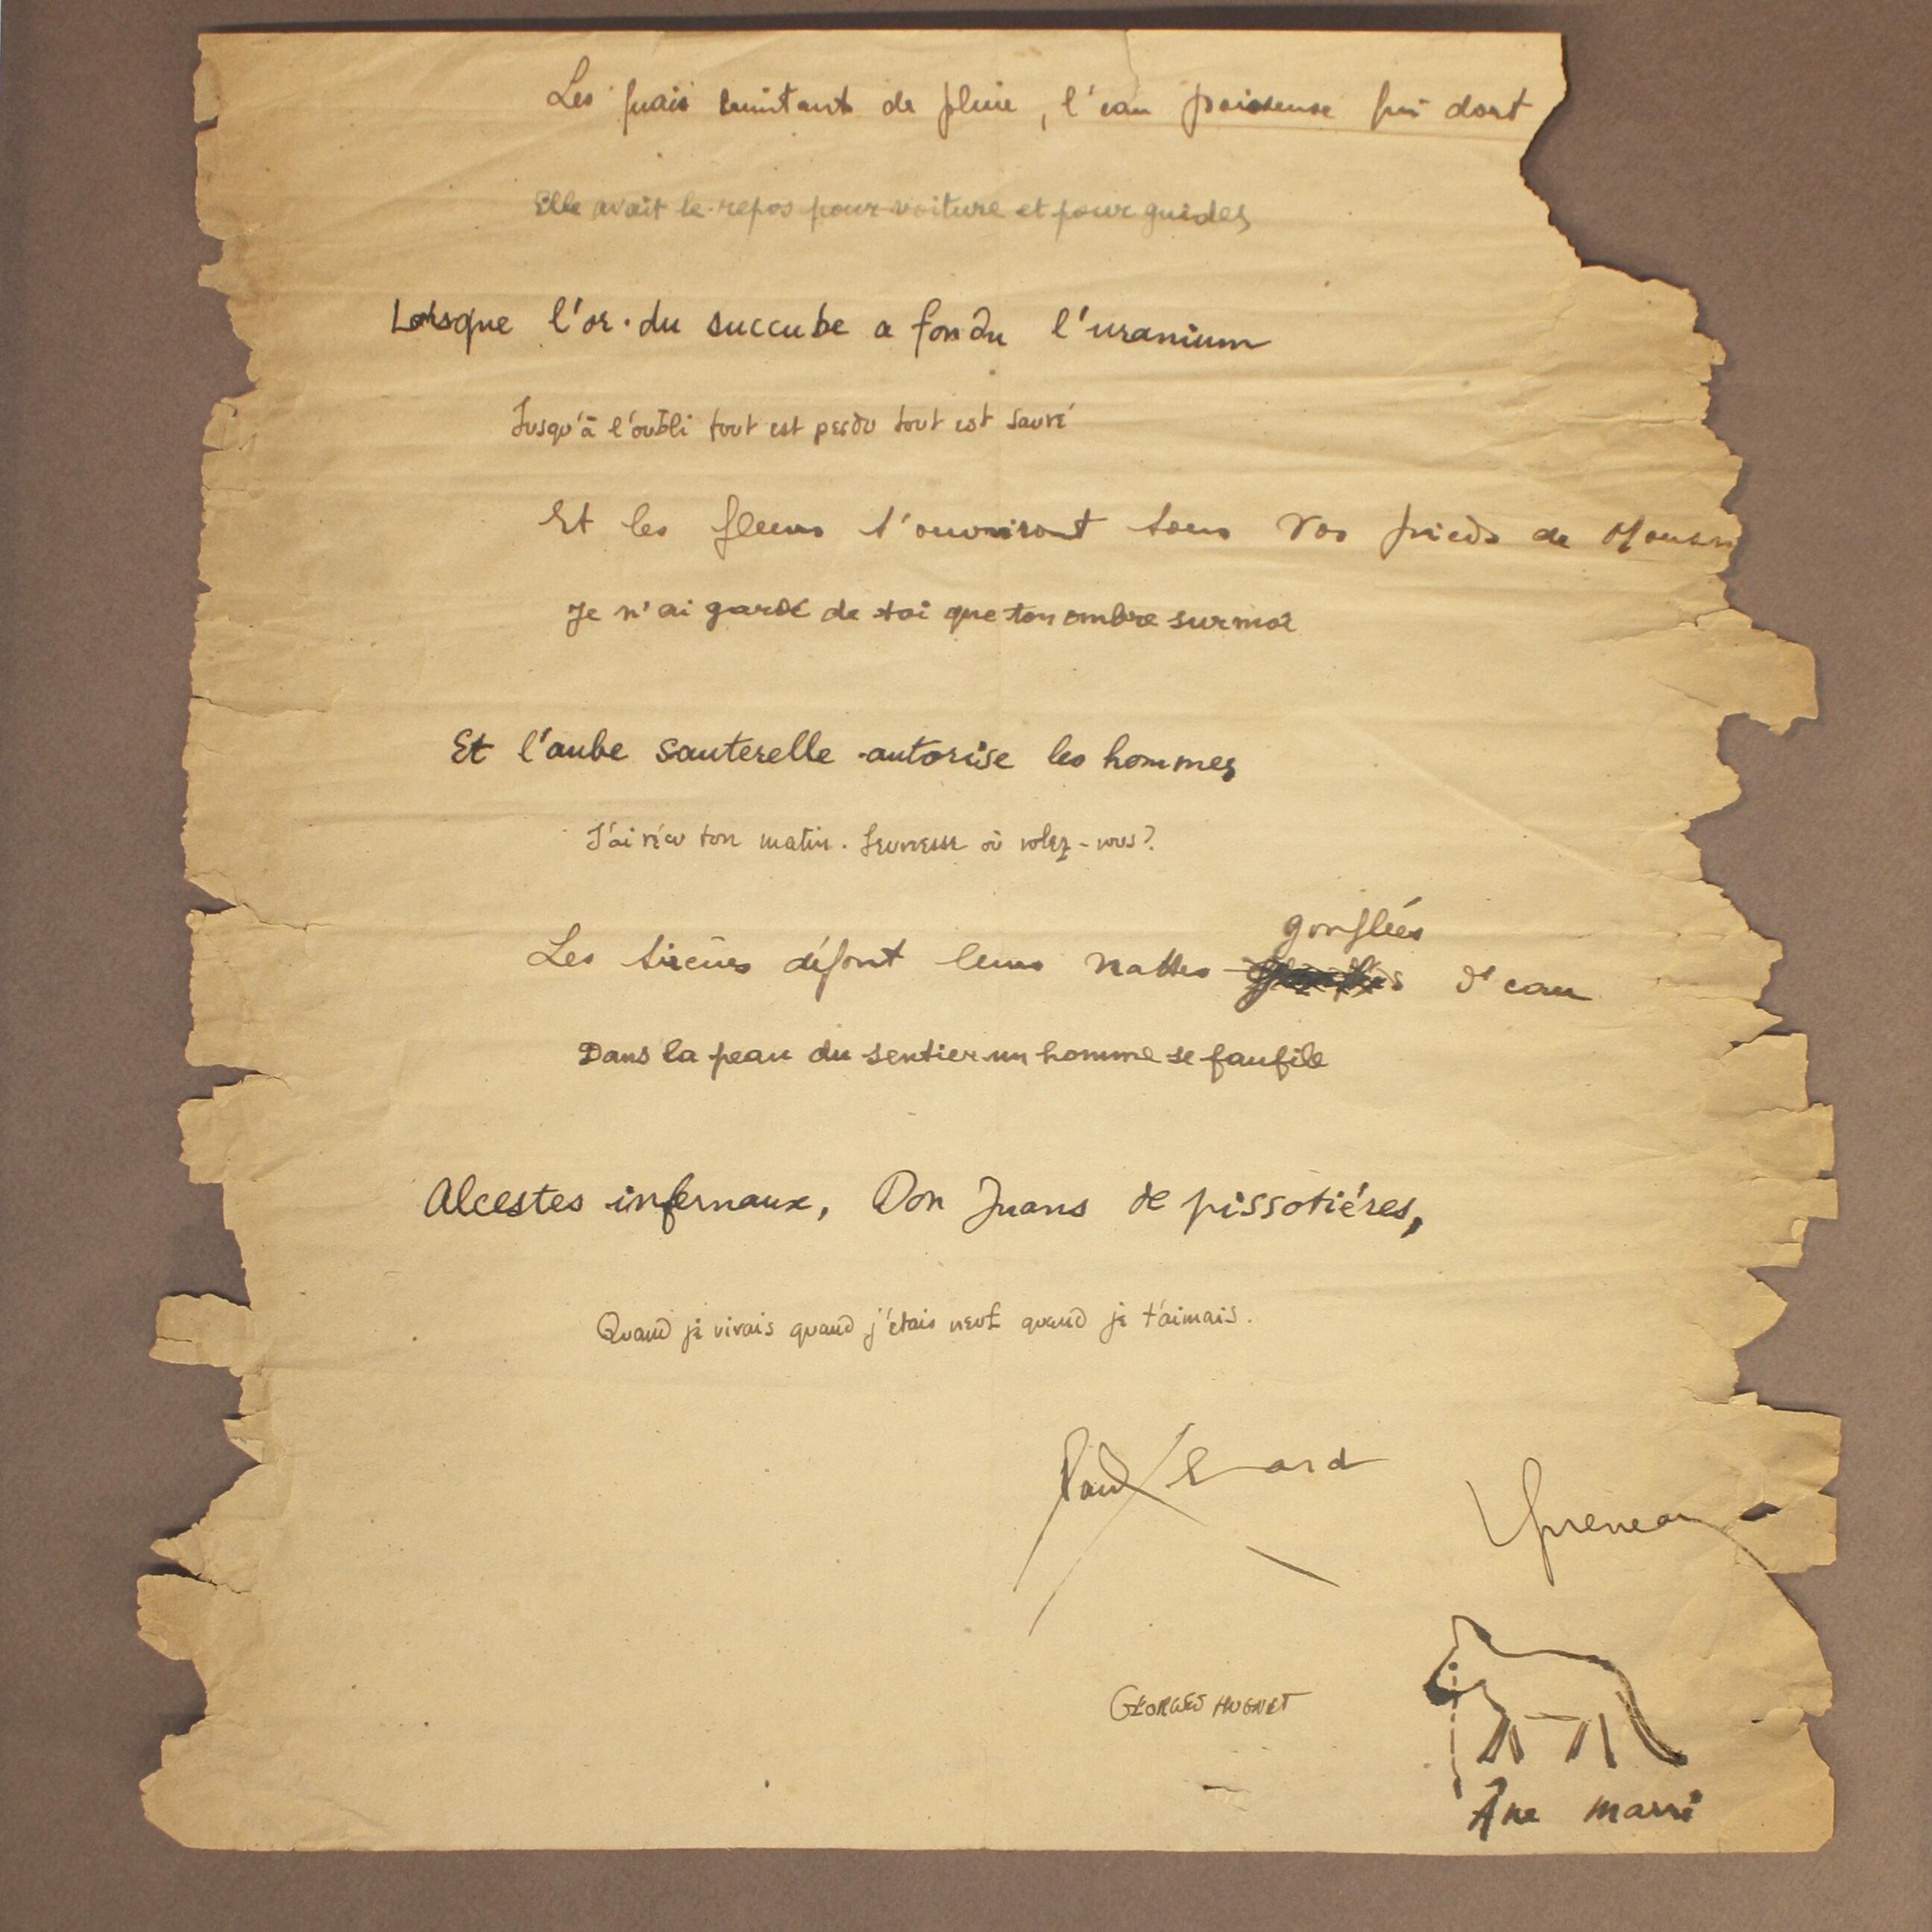 Les quais luisant de pluie, l'eau poisseuse qui dort
Elle avait le repos pour voiture et pour guides
Lorsque l'or du succube a fondu l'uranium
Jusqu'à l'oubli tout est perdu tout est sauvé
Et les fleurs s'ouvriront sous vos pieds de
Je n'ai gardé de toi que ton ombre sur moi
Et l'aube sauterelle autorise les hommes
J'ai vécu ton matin. Jeunesse où volez-vous?
gonflées
Les sirènes défont leurs nattes d'eau
Dans la peau du sentier un homme se faufile
Alcestes infernaux, Don Juans de pissotiéres,
Quand je vivais quand j'étais neuf quand je t'aimais.
Paul Eluard
GEORGES HUGNET
Âne marri